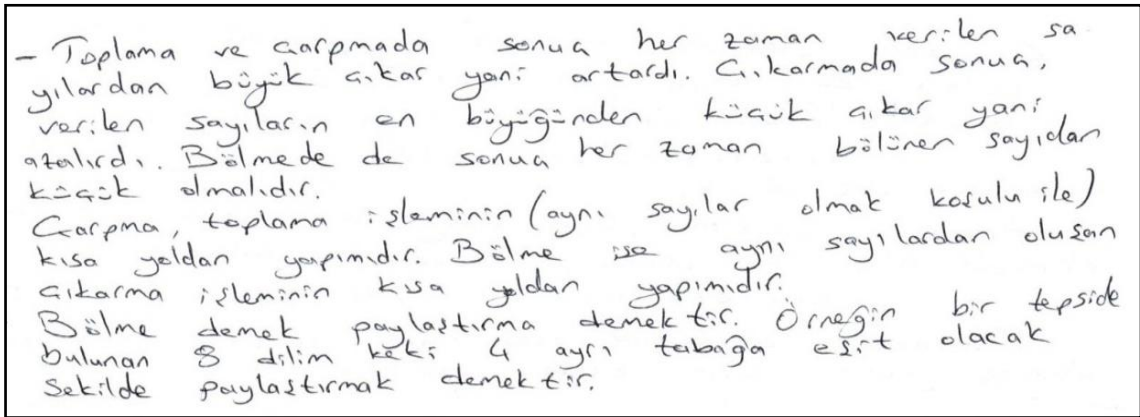 - Toplama ve Çarpmada sonuç her zaman verilen sa
yılardan büyük çıkar yani artardı. Çıkarmada sonuç,
verilen sayıların en büyüğünden küçük çıkar yani
azalırdı. Bölmede de sonuç her zaman bölünen sayıdan
küçük olmalıdır.
Çarpma, toplama işleminin (aynı sayılar olmak koşulu ile)
kısa yoldan yapımıdır. Bölme ise aynı sayılardan oluşan
çıkarma işleminin kısa yoldan yapımıdır.
Bölme demek paylaştırma demektir. Örneğin bir tepside
bulunan 8 dilim keki 4 ayrı tabağa eşit olacak
şekilde paylaştırmak demektir.